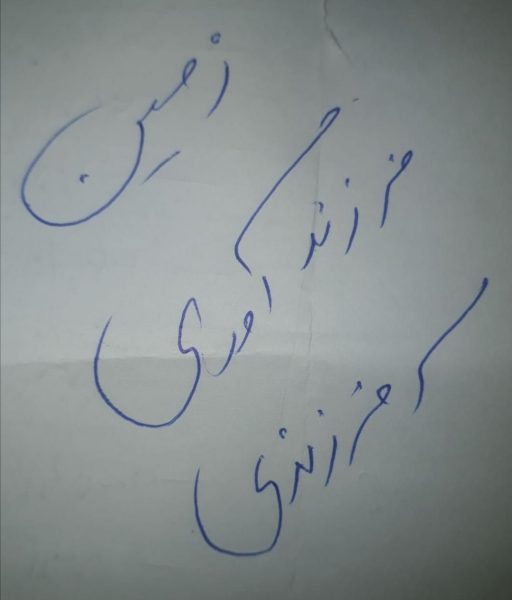 زمین
فرزند آوری
سه فرزندی